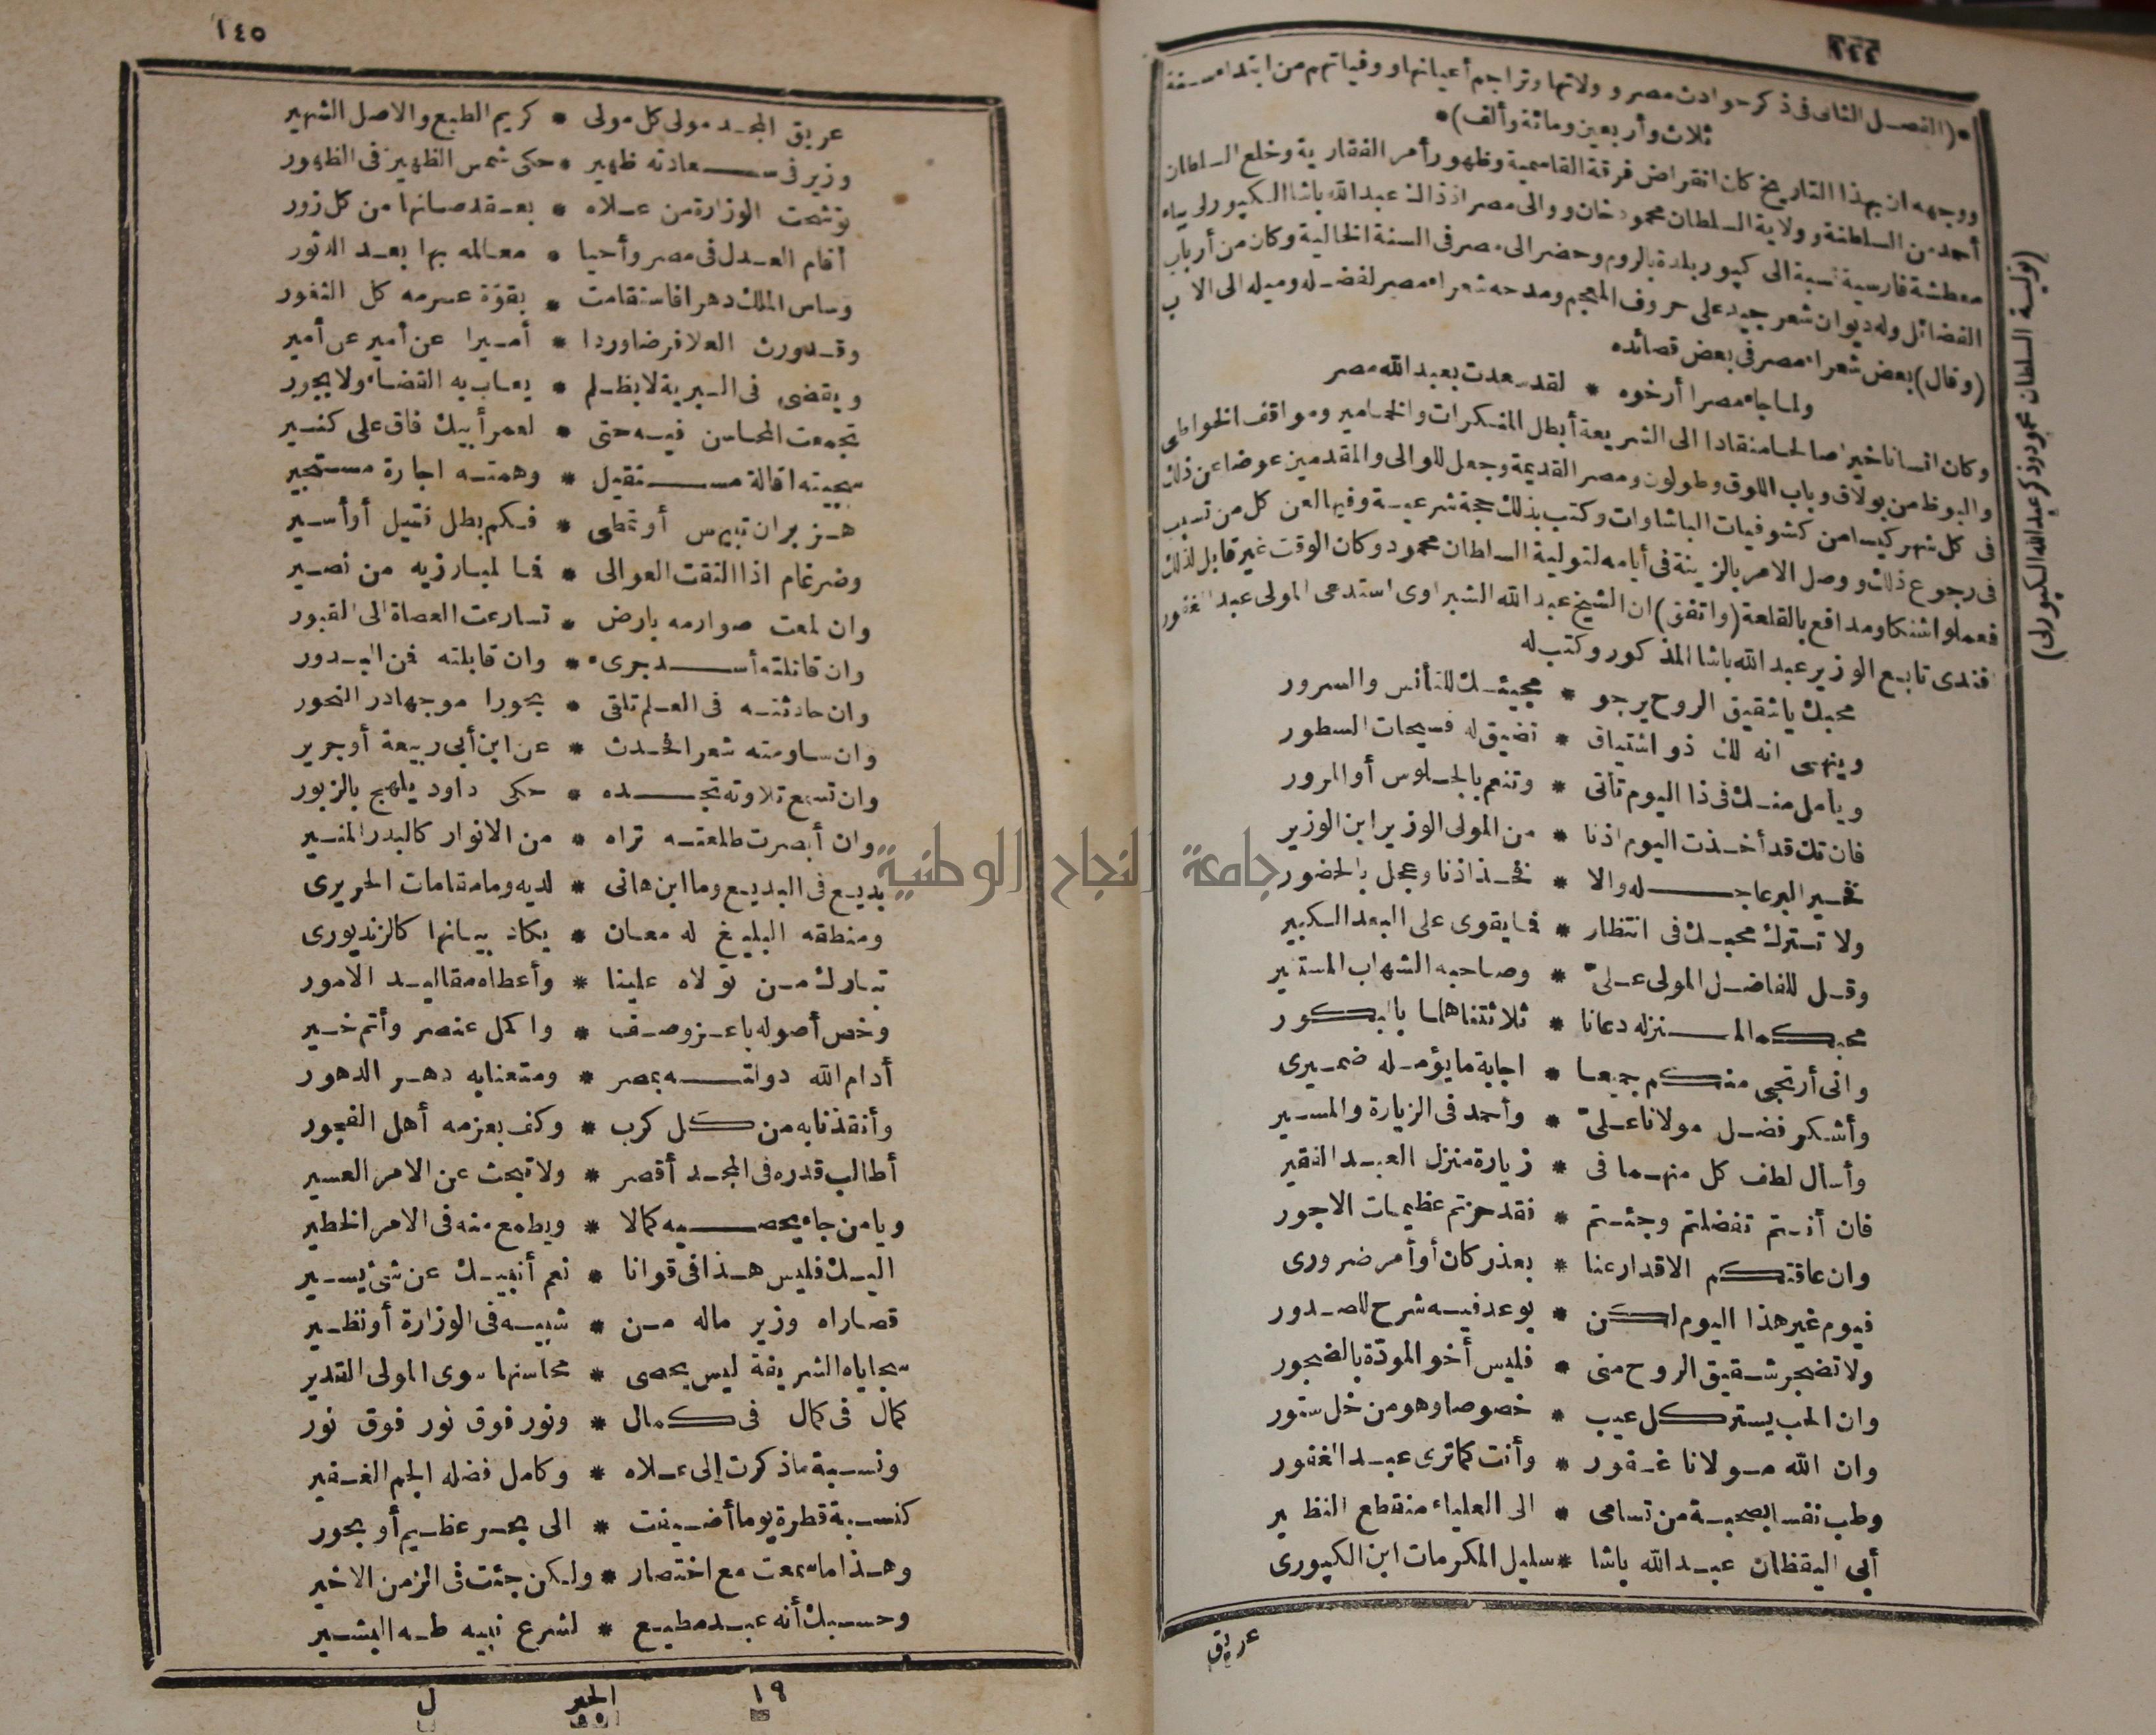 ١٤٤
*(الفصل الثانى فى ذكر حوادث مصر وولاتها وتراجم أعيانها ووفياتهم من ابتداء سنة
ثلاث وأربعين ومائة وألف)*
ووجهه ان بهذا التاريخ كان انقراض فرقة القاسمية وظهور أمر الفقارية وخلع السلطان
أحمد من السلطنة وولاية السلطان محمود خان ووالى مصر اذ ذاك عبد الله باشا الكبورلى بباء
معطشة فارسية نسبة الى كبور بلدة بالروم وحضر الى مصر فى السنة الخالية وكان من أرباب
الفضائل وله ديوان شعر جيد على حروف المعجم ومدحه شعراء مصر لفضله وميله الى الادب
(وقال) بعض شعراء مصر فى بعض قصائده
ولما جاء مصرا أرخوه * لقد سعدت بعبد الله مصر
وكان انسانا خيرا صالحا منقادا الى الشريعة أبطل المنكرات والخمامير ومواقف الخواطى
والبوظ من بولاق وباب اللوق وطولون ومصر القديمة وجعل للوالى والمقدمين عوضا عن ذلك
فى كل شهر كيسا من كشوفيات الباشاوات وكتب بذلك حجة شرعية وفيها لعن كل من تسبب
فى رجوع ذلك ووصل الامر بالزينة فى أيامه لتولية السلطان محمود وكان الوقت غير قابل لذلك
فعملوا شنكا ومدافع بالقلعة (واتفق) ان الشيخ عبد الله الشبراوى استدعى المولى عبد الغفور
فندى تابع الوزير عبد الله باشا المذكور وكتب له
محبك يا شقيق الروح يرجو * مجيئك للتأنس والسرور
وينهى انه لك ذو اشتياق * تضيق له فسيحات السطور
ويأمل منك فى ذا اليوم تأتى * وتنعم بالجلوس أو المرور
فان تك قد أخذت اليوم اذنا * من المولى الوزير ابن الوزير
فخير البر عاجله والا * فخذ اذنا وعجل بالحضور
ولا تترك محبك فى انتظار * فما يقوى على البعد الكبير
وقل للفاضل المولى علىّ * وصاحبه الشهاب المستنير
محبكم الى منزله دعانا * ثلاثتنا هلما بالبكور
وانى أرتجى منكم جميعا * اجابة ما يؤمله ضميرى
وأشكر فضل مولانا علىّ * وأحمد فى الزيارة والمسير
وأسأل لطف كل منهما فى * زيارة منزل العبد الفقير
فان أنتم تفضلتم وجئتم * فقد حزتم عظيمات الاجور
وان عاقتكم الاقدار عنا * بعذر كان أو أمر ضرورى
فيوم غير هذا اليوم لكن * بوعد فيه شرح للصدور
ولا تضجر شقيق الروح منى * فليس أخو المودّة بالضجور
وان الحب يستر كل عيب * خصوصا وهو من خل ستور
وان الله مولانا غفور * وأنت كما ترى عبد الغفور
وطب نفسا بصحبة من تسامى * الى العلياء منقطع النظير
أبى اليقظان عبد الله باشا * سليل المكرمات ابن الكبورى
عريق
(تولية السلطان محمود وذكر عبد الله الكبورلى)
١٤٥
عريق المجد مولى كل مولى * كريم الطبع والاصل الشهير
وزير فى سعادته ظهير * حكى شمس الظهيرة فى الظهور
توشحت الوزارة من علاه * بعقد صانها من كل زور
أقام العدل فى مصر وأحيا * معالمه بها بعد الدثور
وساس الملك دهرا فاستقامت * بقوّة عزمه كل الثغور
وقد ورث العلا فرضا وردا * أميرا عن أمير عن أمير
ويقضى فى البرية لا بظلم * يعاب به القضاء ولا يجور
تجمعت المحاسن فيه حتى * لعمر أبيك فاق على كثير
سجيته اقالة مستقيل * وهمته اجارة مستجير
هزبر ان تبيهس أو تمطى * فكم بطل قتيل أو أسير
وضرغام اذا التقت العوالى * فما لمبارزيه من نصير
وان لمعت صوارمه بارض * تسارعت العصاة الى القبور
وان قاتلته أسد جرىء * وان قابلته فن البدور
وان حادثته فى العلم تلقى * بحورا موجها در النحور
وان ساومته شعرا فحدث * عن ابن أبى ربيعة أو جرير
وان تسمع تلاوته تجده * حكى داود يلهج بالزبور
وان أبصرت طلعته تراه * من الانوار كالبدر المنير
بديع فى البديع وما ابن هانى * لديه وما مقامات الحريرى
ومنطقه البليغ له معان * يكاد بيانها كالزند يورى
تبارك من تولاه علينا * وأعطاه مقاليد الامور
وخص أصوله باعز وصف * واكمل عنصر وأتم خير
أدام الله دولته بمصر * ومتعنا به دهر الدهور
وأنقذنا به من كل كرب * وكف بعزمه أهل الفجور
أطالب قدره فى المجد أقصر * ولا تبحث عن الامر العسير
ويا من جاء يحصيه كمالا * ويطمع منه فى الامر الخطير
اليك فليس هذا فى قوانا * نعم أنبيك عن شئ يسير
قصاراه وزير ماله من * شبيه فى الوزارة أو نظير
سجاياه الشريفة ليس يحصى * محاسنها سوى المولى القدير
كمال فى كمال فى كمال * ونور فوق نور فوق نور
ونسبة ما ذكرت إلى علاه * وكامل فضله الجم الغفير
كنسبة قطرة يوما أضيفت * الى بحر عظيم أو بحور
وهذا ما سمعت مع اختصار * ولكن جئت فى الزمن الاخير
وحسبك أنه عبد مطيع * لشرع نبيه طه البشير
١٩ الجبر ل
جامعة النجاح الوطنية